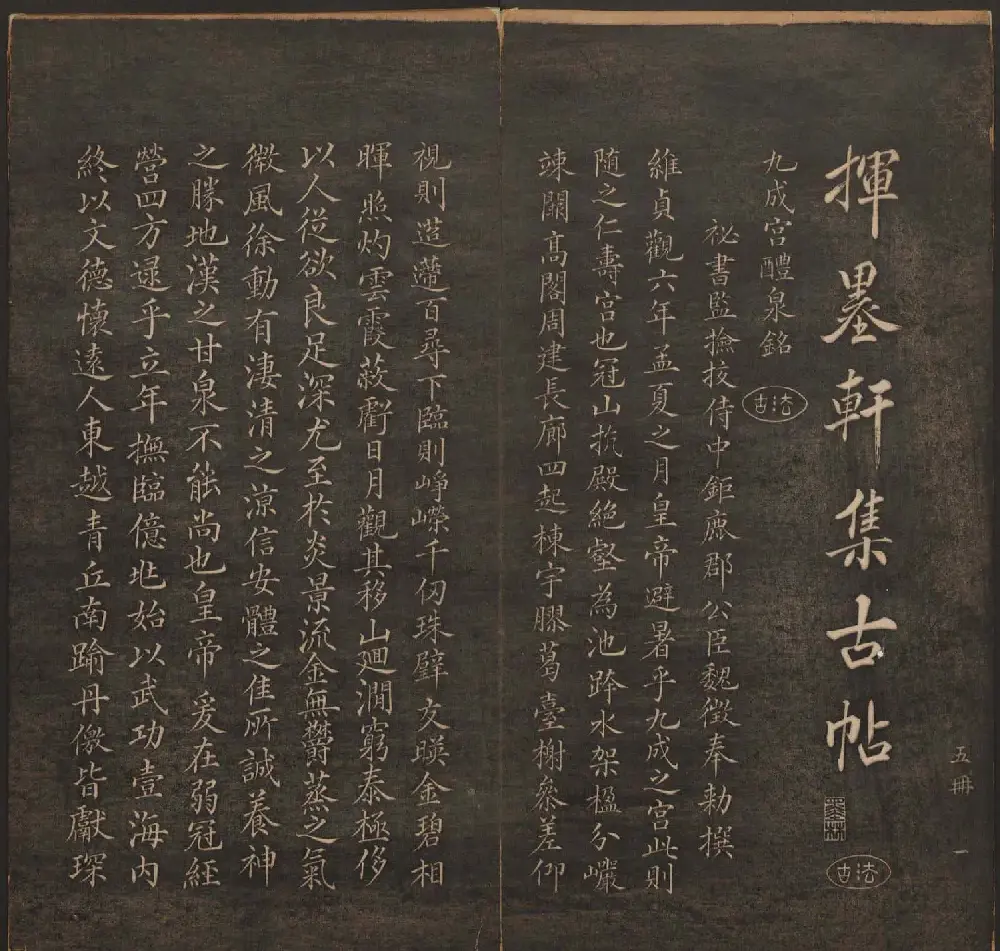 揮墨軒集古帖
法古
五冊
一
九成宮醴泉銘
法古
祕書監撿挍侍中鉅鹿郡公臣魏徵奉勅撰
維貞觀六年孟夏之月皇帝避暑乎九成之宮此則
隨之仁壽宮也冠山抗殿絕壑為池跨水架楹分巖
竦闕高閣周建長廊四起棟宇膠葛臺榭叅差仰
視則迢遰百尋下臨則崢嶸千仞珠壁交暎金碧相
暉照灼雲霞蔽虧日月觀其移山迴澗窮泰極侈
以人從欲良足深尤至於炎景流金無鬱蒸之氣
微風徐動有淒清之涼信安體之佳所誠養神
之勝地漢之甘泉不能尚也皇帝爰在弱冠經
營四方逯乎立年撫臨億兆始以武功壹海內
終以文德懷遠人東越青丘南踰丹儌皆獻琛